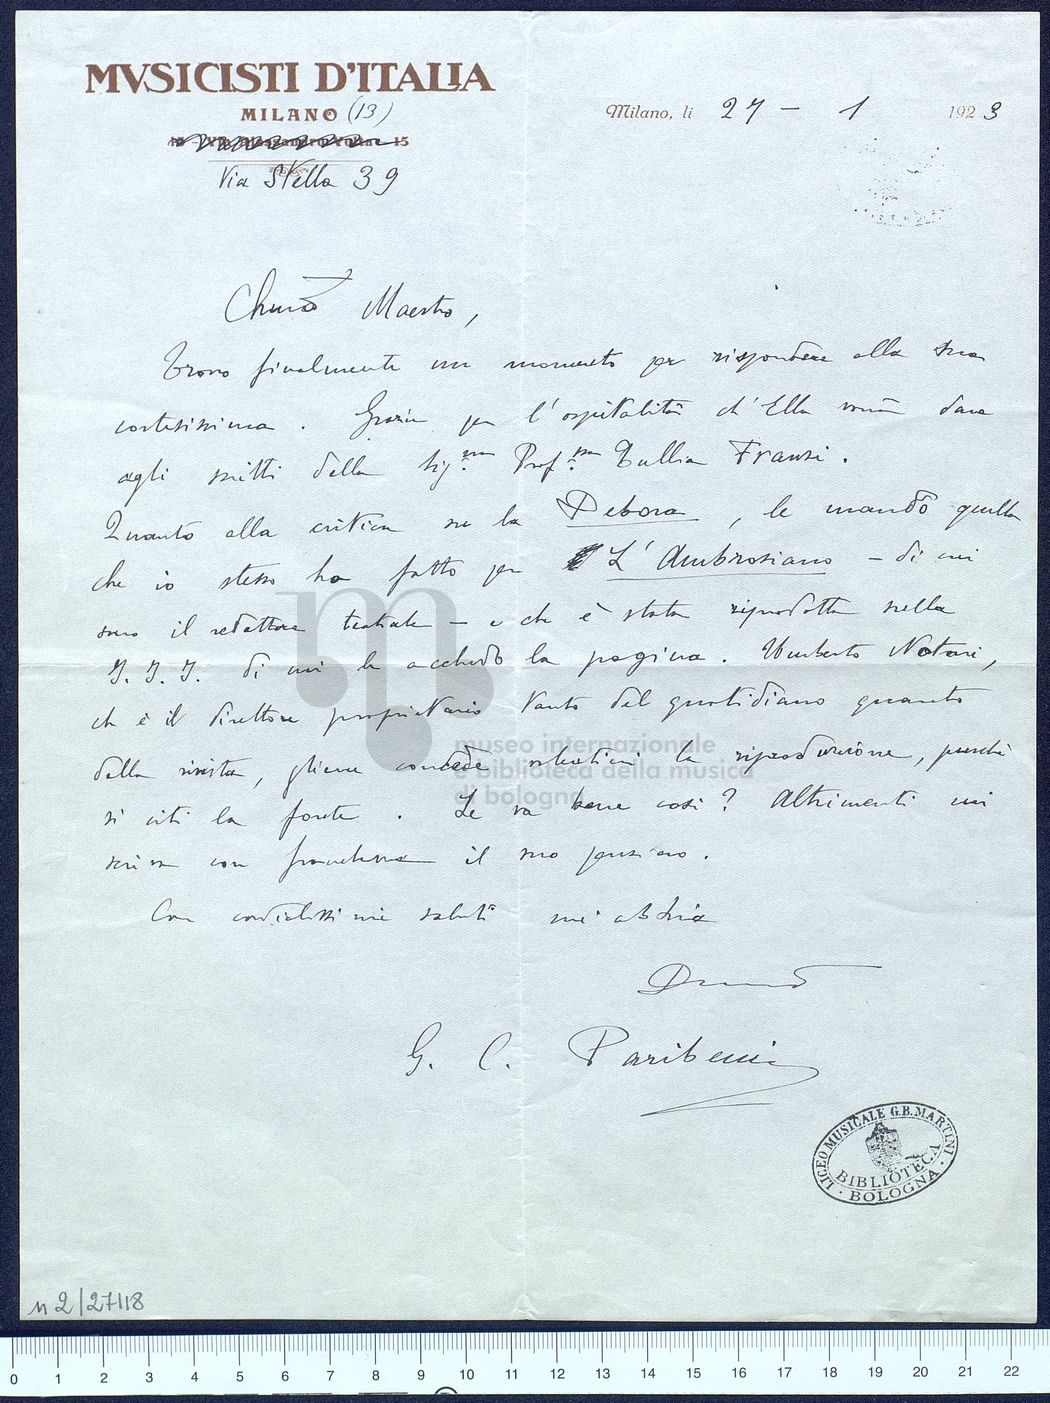 MVSICISTI D'ITALIA
MILANO (13)
15 - Via Alessandro Volta - 15
Via Stella 39
Milano, li 27 - 1 1923
Chmo Maestro,
Trovo finalmente un momento per rispondere alla sua
cortesissima. Grazie per l'ospitalità ch'Ella vorrà dare
agli scritti della Sig.na Prof.ssa Tullia Franzi.
Quanto alla critica su la Debora, le mando quella
che io stesso ho fatto per L'Ambrosiano - di cui
sono il redattore teatrale - e che è stata riprodotta nella
I. I. I. di cui le accludo la pagina. Umberto Notari,
ch è il direttore proprietario tanto del quotidiano quanto
della rivista, gliene concede volentieri la riproduzione, purchè
si citi la fonte. Le va bene così? Altrimenti mi
scriva con franchezza il suo pensiero.
Con cordialissimi saluti mi abbia
Dev.mo
G. C. Paribeni
LICEO MUSICALE G.B. MARTINI
BIBLIOTECA
BOLOGNA
museo internazionale
e biblioteca della musica
di bologna
n 2/27118
0 1 2 3 4 5 6 7 8 9 10 11 12 13 14 15 16 17 18 19 20 21 22